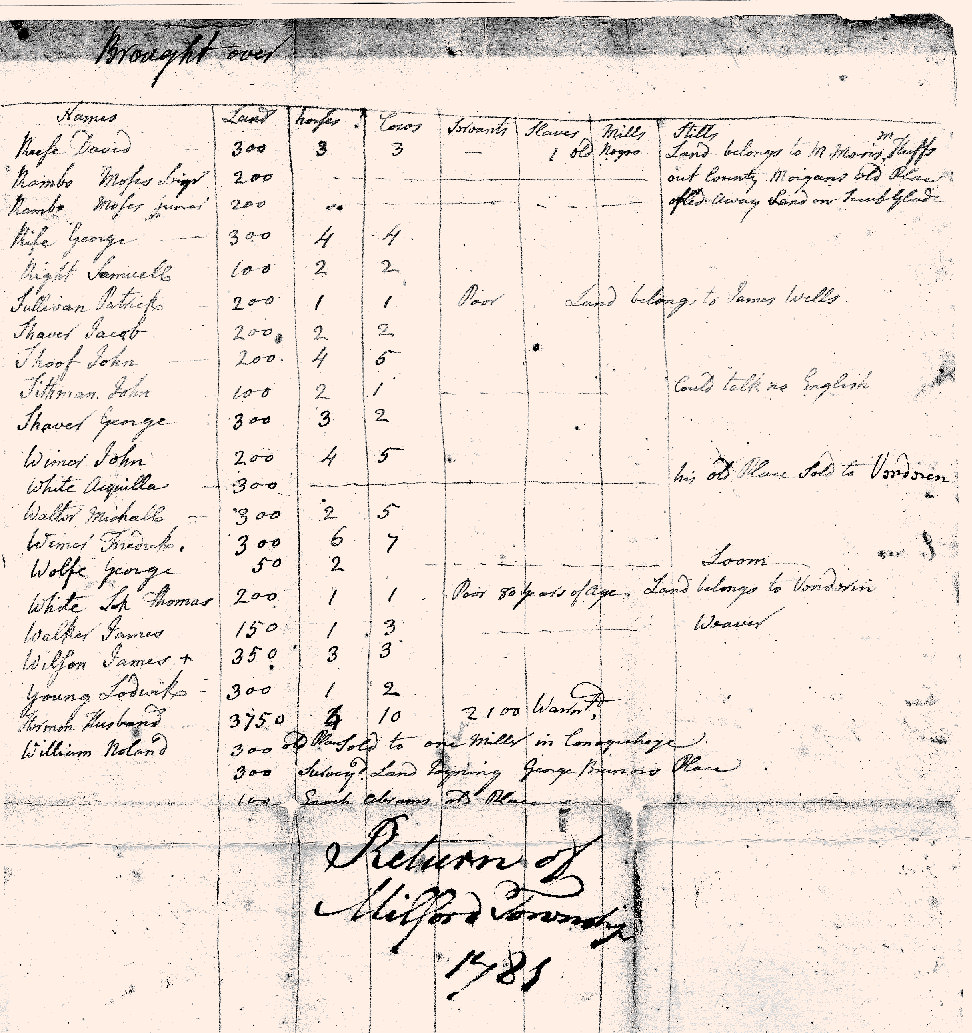 Brought over
Names Land horses Cows Servants Slaves Mills Stills
Reese David 300 3 3 1 old Negro Land belongs to Mr Morris
Rambo Moses Senr 200 out County Morgans old Place
Rambo Moses junr 200 Away Land on
Rife George 300 4 4
Right Samuell 100 2 2
Sullivan Patrick 200 1 1 Poor Land belongs to James Wells
Shaver Jacob 200 2 2
Shoof John 200 4 5
Tithman John 100 2 1 Could talk no English
Shaver George 300 3 2
Wimer John 200 4 5
White Aiquilla 300 his old Place Sold to Vondoren
Walter Michall 300 2 5
Wimer Fredrick 300 6 7
Wolfe George 50 2 Loom
White Thomas 200 1 1 Poor 80 years of Age Land belongs to Vondorin
Walker James 150 1 3 Weaver
Wilson James + 350 3 3
Young Lodwik 300 1 2
Hermon Husband 3750 4 10 2100 Warrt.
William Noland 300 old Place Sold to one Miller in
300 Survey'd Land Joyning George Place
100 Enoch Abrams old Place
Return of
Milford Township
1781